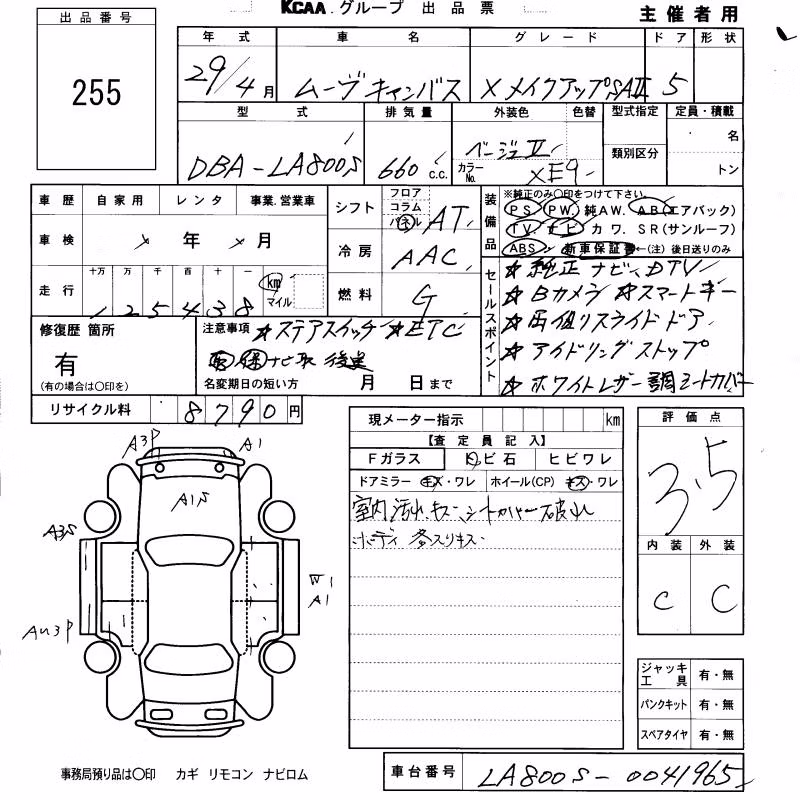 KCAA.グループ 出品票
主催者用
出品番号
255
年式 車名 グレード ドア 形状
29/4月 ムーヴキャンバス Xメイクアップ SAⅡ 5
型式 排気量 外装色 色替 型式指定 定員・積載
DBA-LA800S 660 c.c. ベージュⅡ 名
カラーNo. XE9 類別区分 トン
車歴 自家用 レンタ 事業.営業車
車検 年 月
走行 十万 万 千 百 十 一
125438 km マイル
シフト フロア コラム パネル AT
冷房 AAC
燃料 G
装備品
※純正のみ○印をつけて下さい.
PS. PW. 純AW. AB(エアバック)
TV. ナビ カワ. SR(サンルーフ)
ABS 新車保証書←(注) 後日送りのみ
セールスポイント
☆純正ナビ、DTV
☆Bカメラ ☆スマートキー
☆両側スライドドア
☆アイドリングストップ
☆ホワイトレザー調シートカバー
修復歴 箇所
有
(有の場合は○印を)
注意事項 ☆ステアスイッチ ☆ETC
取 保 ナビ取 後送
名変期日の短い方 月 日まで
リサイクル料 8790円
現メーター指示 km
【査定員記入】
Fガラス トビ石 ヒビワレ
ドアミラー キズ・ワレ ホイール(CP) キズ・ワレ
室内汚れ.キズ、シートカバー破れ
ボディ 多スリキズ
評価点
3.5
内装 外装
C C
A3P A1
A1S
A3S
W1
A1
AU3P
ジャッキ工具 有・無
パンクキット 有・無
スペアタイヤ 有・無
事務局預り品は○印 カギ リモコン ナビロム
車台番号 LA800S-0041965